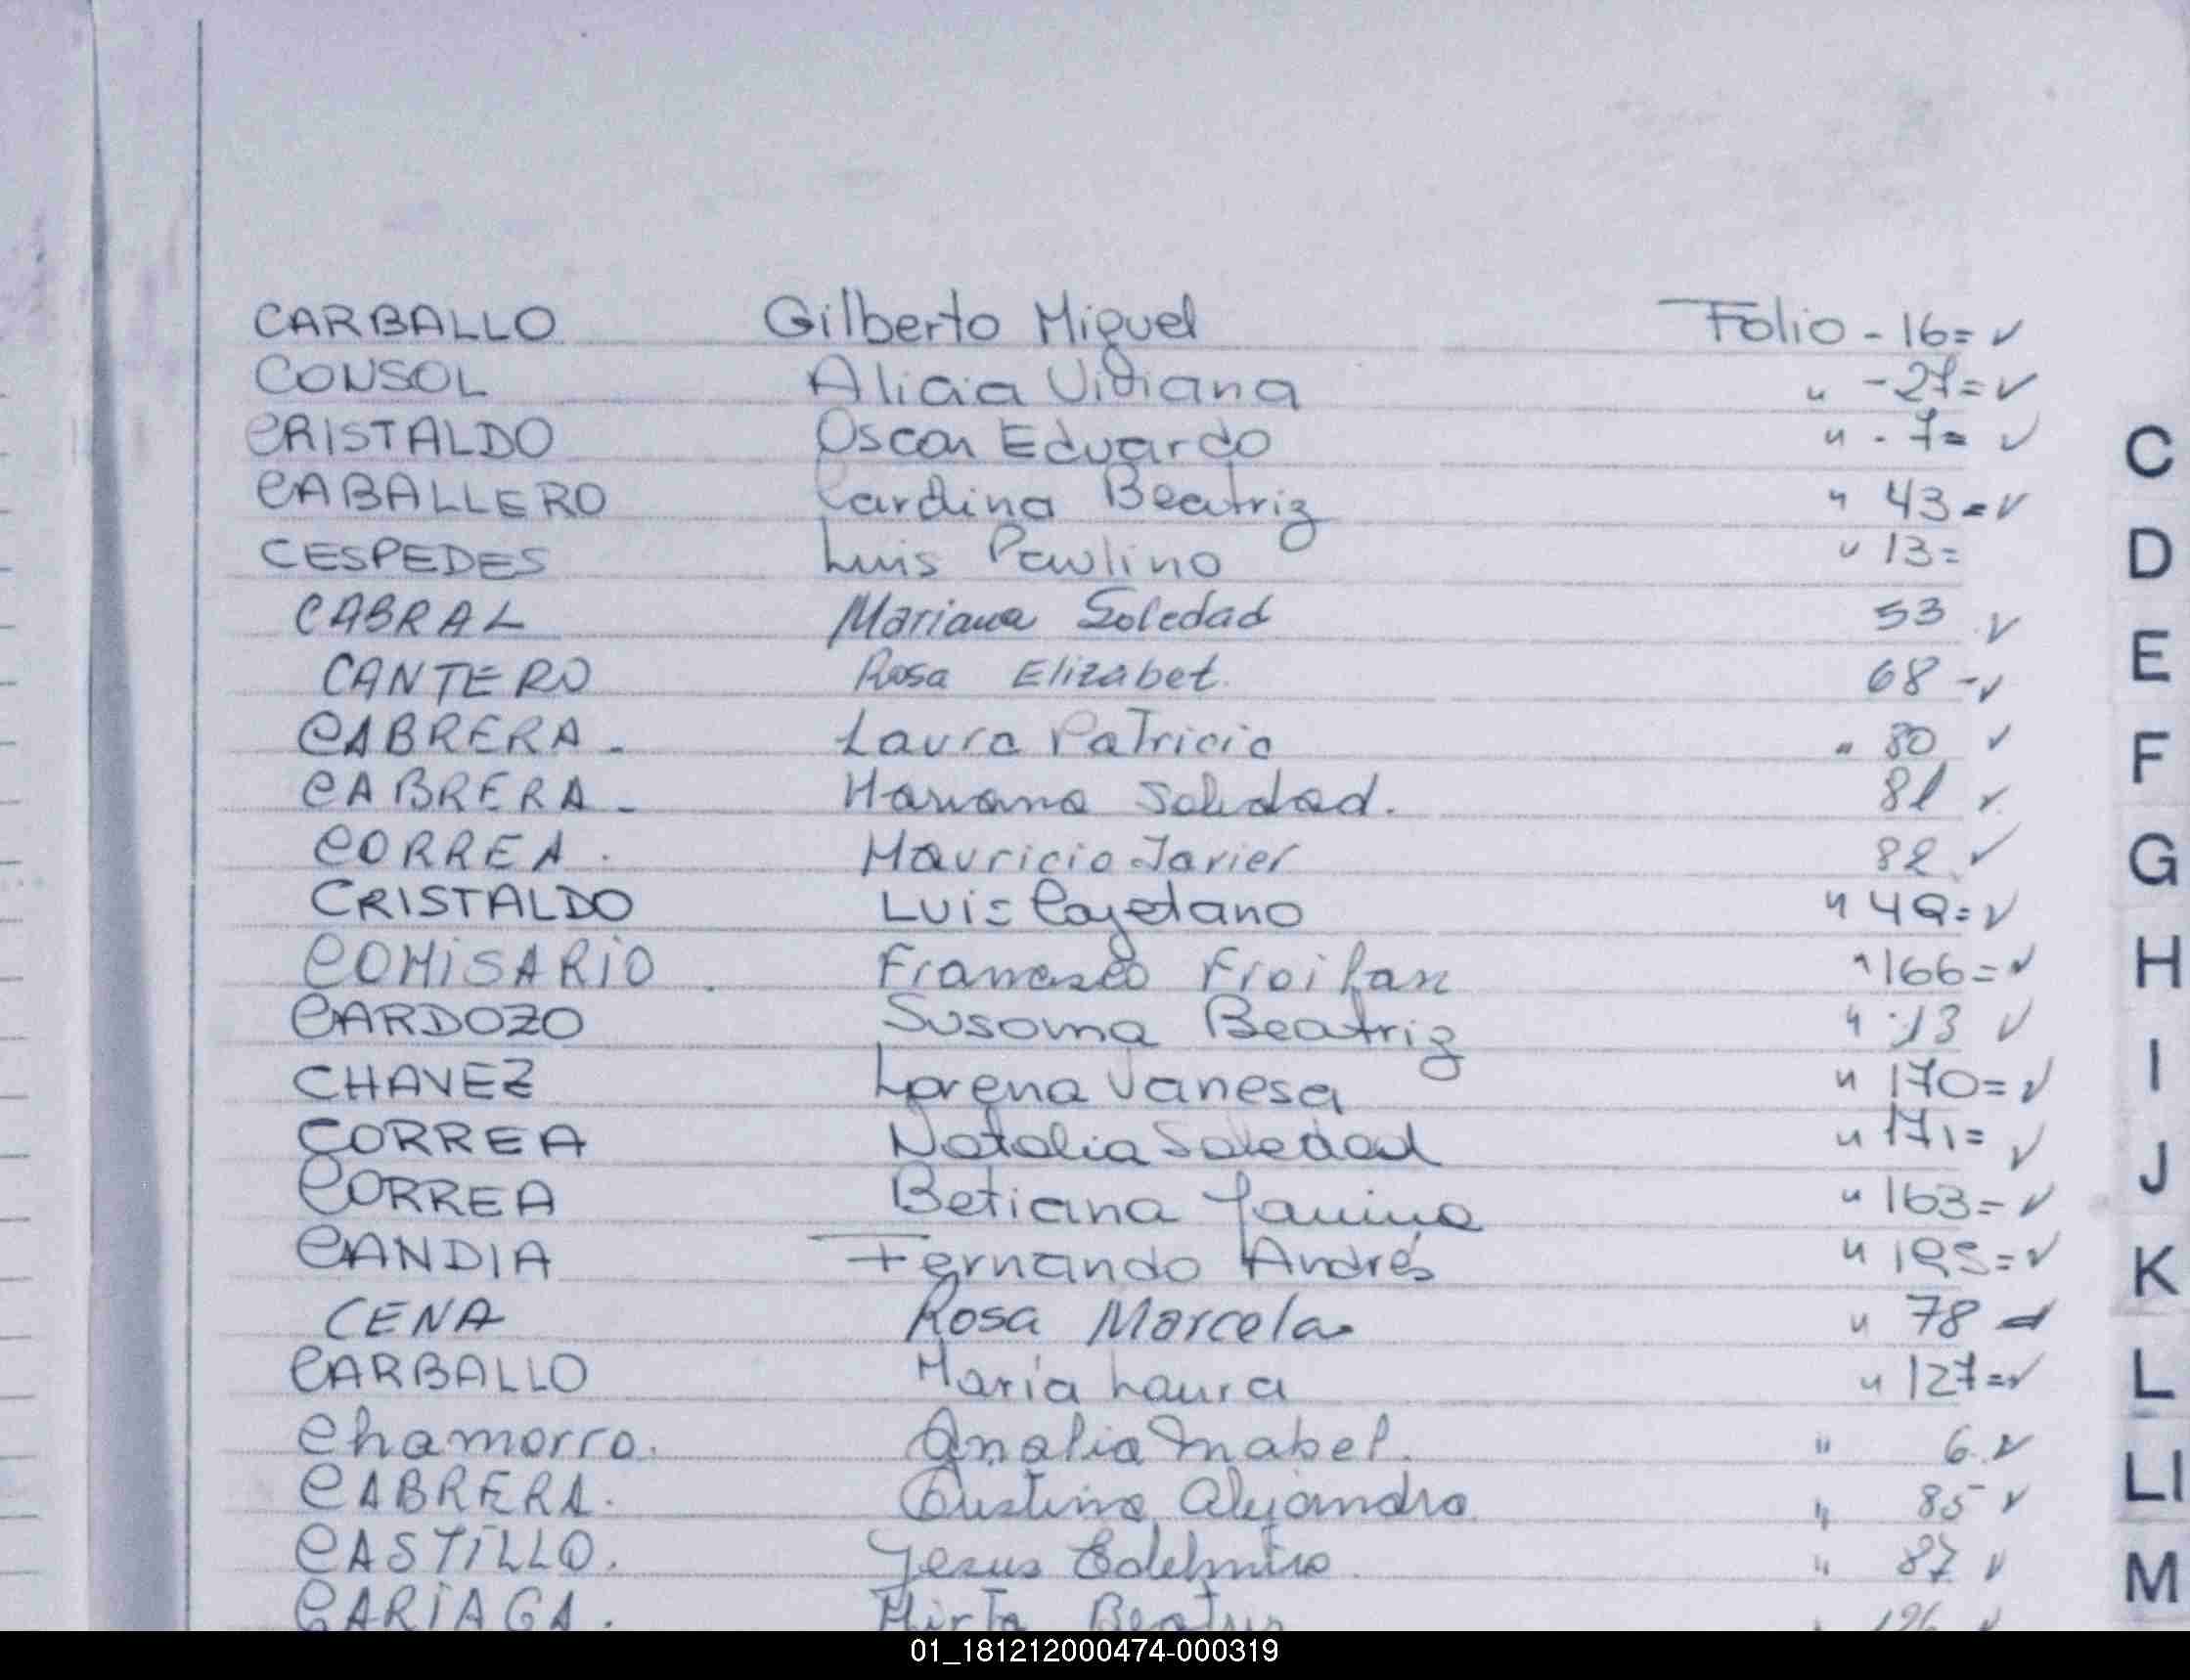 CARBALLO Gilberto Miguel Folio - 16= ✓
CONSOL Alicia Viviana " - 27= ✓
CRISTALDO Oscar Eduardo " - 7= ✓
CABALLERO Cardina Beatriz " 43= ✓
CESPEDES Luis Paulino " 13=
CABRAL Mariana Soledad 53 ✓
CANTERO Rosa Elizabet. 68 - ✓
CABRERA - Laura Patricia " 80 ✓
CABRERA - Mariana Soledad. 81 ✓
CORREA. Mauricio Javier 82 ✓
CRISTALDO Luis Cayetano " 49= ✓
COMISARIO. Francisco Froilan " 166= ✓
CARDOZO Susana Beatriz " 13 ✓
CHAVEZ Lorena Vanesa " 170= ✓
CORREA Natalia Soledad " 171= ✓
CORREA Betiana Yanina " 163= ✓
CANDIA Fernando Andrés " ✓
CENA Rosa Marcela " 78
CARBALLO María Laura " 127= ✓
Chamorro. Analia Mabel. " 6. ✓
CABRERA. Cristina Alejandra " 85 ✓
CASTILLO. Jesus Edelmiro " 87 ✓
CARIAGA. Mirta Beatriz ✓
C
D
E
F
G
H
I
J
K
L
Ll
M
01_181212000474-000319